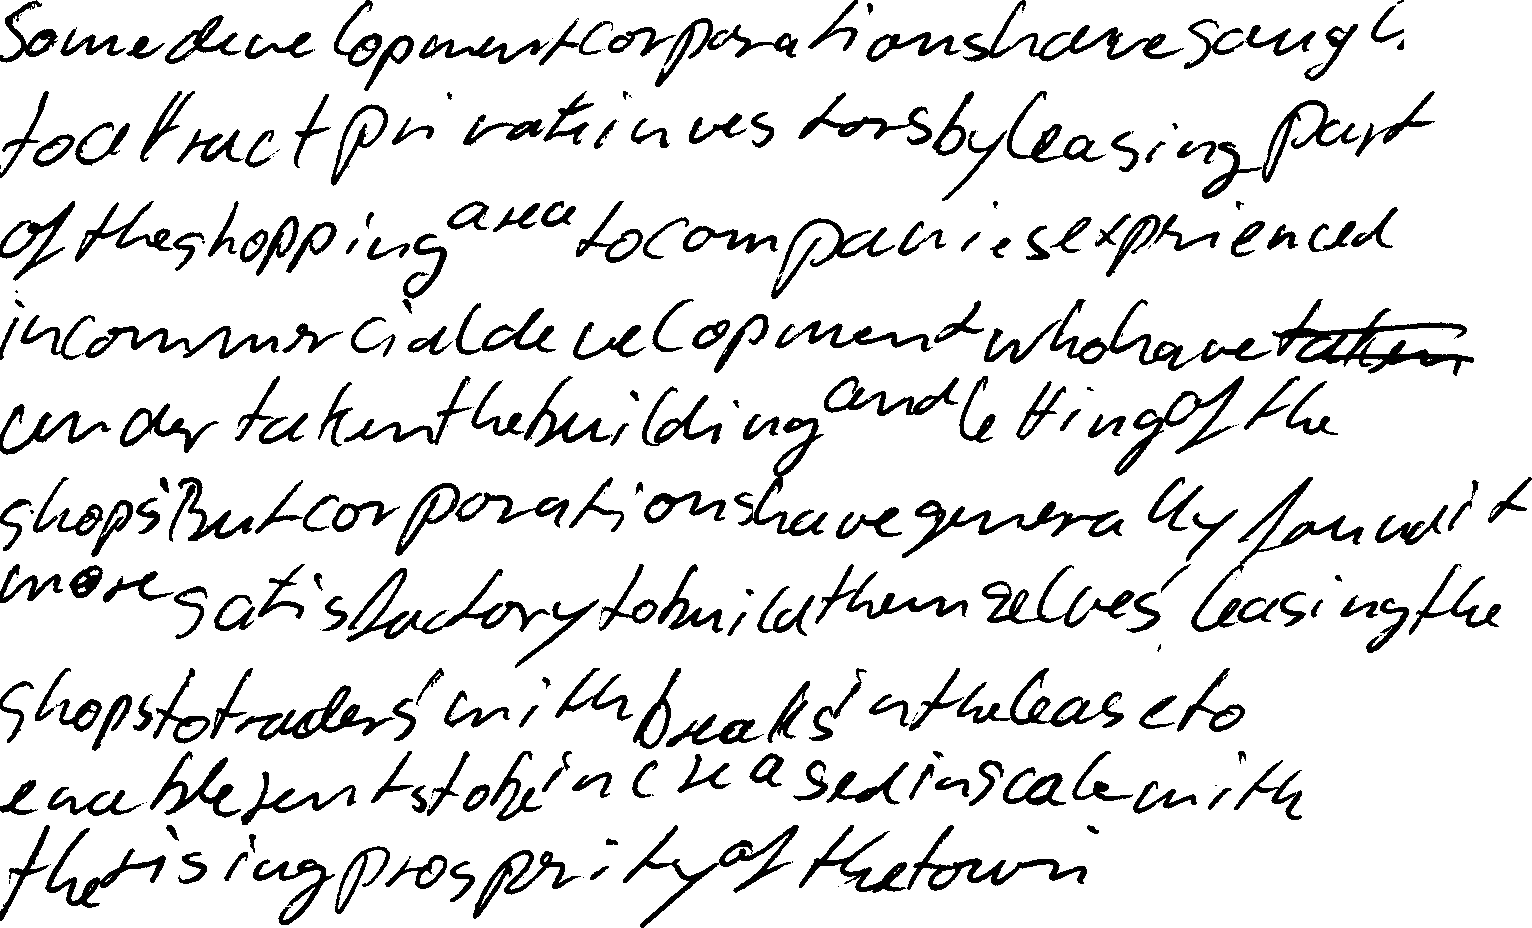 Some development corporations have sought
to attract private investors by leasing part
of the shopping area to companies exprienced
in commercial development who have taken
undertaken the building and letting of the
shops. But corporations have generally found it
more satisfactory to build themselves, leasing the
shops to traders with breaks in the lease to
enable rents to be increased in scale with
the rising prosperity of the town